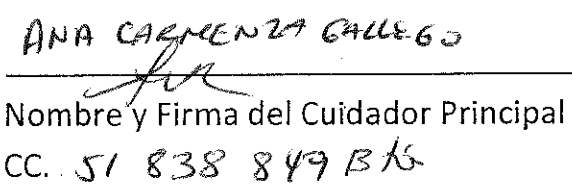 ANA CARMENZA GALLEGO
Nombre y Firma del Cuidador Principal
CC. 51 838 849 Bta